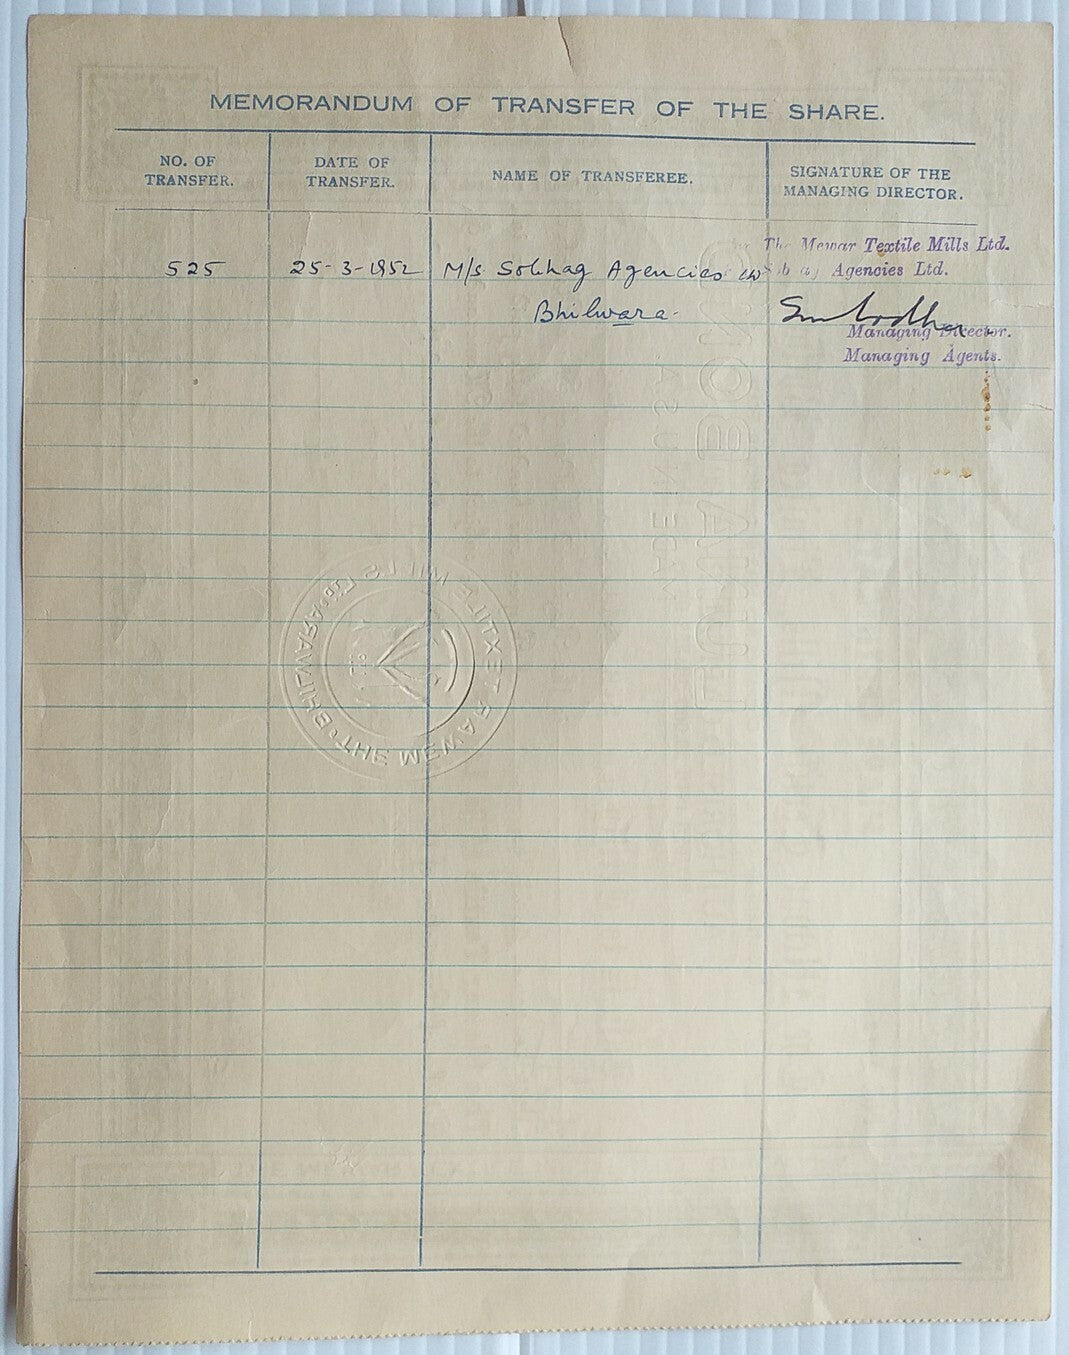 MEMORANDUM OF TRANSFER OF THE SHARE.
NO. OF TRANSFER.
DATE OF TRANSFER.
NAME OF TRANSFEREE.
SIGNATURE OF THE MANAGING DIRECTOR.
The Mewar Textile Mills Ltd.
525 25-3-1952 M/s Sobhag Agencies Agencies Ltd.
Bhilwara.
Managing Director.
Managing Agents.
THE MEWAR TEXTILE MILLS LTD. BHILWARA